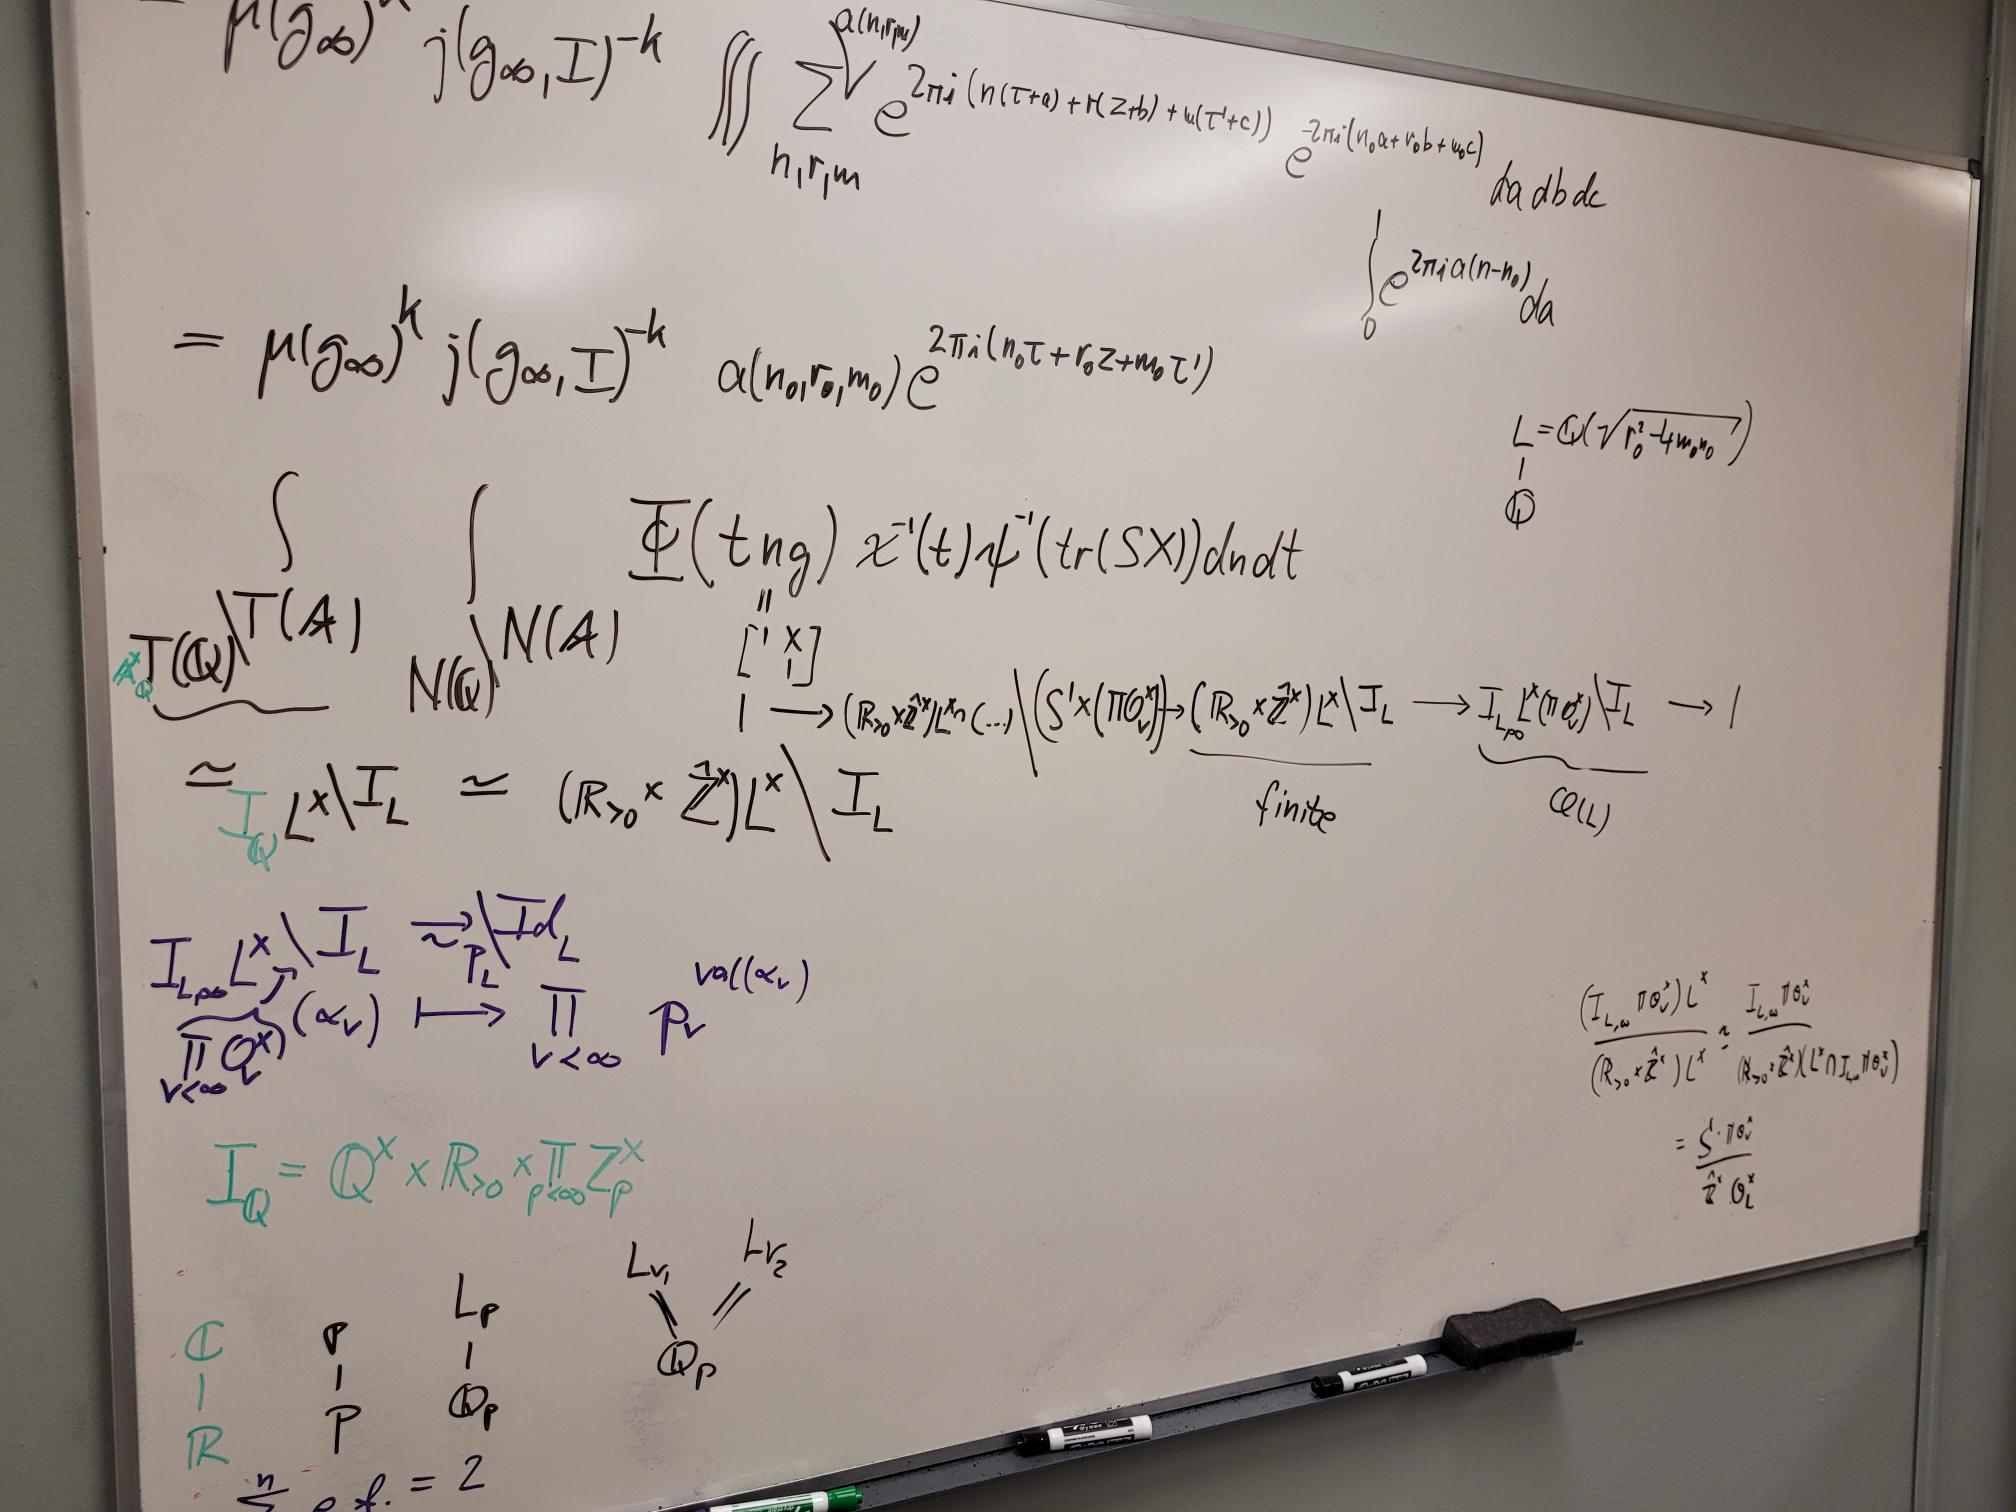 = μ(g∞)^k j(g∞, I)^{-k} ∭ Σ_{n,r,m} a(n,r,m) e^{2πi(n(τ+a) + r(z+b) + m(τ'+c))} e^{-2πi(n₀a + r₀b + m₀c)} da db dc
∫₀¹ e^{2πia(n-n₀)} da
= μ(g∞)^k j(g∞, I)^{-k} a(n₀, r₀, m₀) e^{2πi(n₀τ + r₀z + m₀τ')}
L = ℚ(√(r₀² - 4m₀n₀))
|
ℚ
∫ ∫ Φ(tng) χ^{-1}(t) ψ^{-1}(tr(SX)) dn dt
𝔸_ℚ^× T(ℚ)\T(𝔸) N(ℚ)\N(𝔸)
=
[1 X
1]
1 → (ℝ_{>0} × Ẑ^×)L^× ∩ (...) \ (S¹ × (Π𝒪_v^×)) → (ℝ_{>0} × Ẑ^×)L^× \ I_L → I_{L,∞} L^×(Π𝒪_v^×) \ I_L → 1
finite
Cl(L)
≃ I_ℚ L^× \ I_L ≃ (ℝ_{>0} × Ẑ^×)L^× \ I_L
I_{L,∞} L^× \ I_L ⥲ P_L \ Id_L
Π_{v<∞} 𝒪_v^× (α_v) ↦ Π_{v<∞} p_v^{val(α_v)}
(I_{L,∞} Π𝒪_v^×)L^× / (ℝ_{>0} × Ẑ^×)L^× ≃ I_{L,∞} Π𝒪_v^× / (ℝ_{>0} × Ẑ^×)(L^× ∩ I_{L,∞} Π𝒪_v^×)
= S¹·Π𝒪_v^× / Ẑ^× 𝒪_L^×
I_ℚ = ℚ^× × ℝ_{>0} × Π_{p<∞} ℤ_p^×
L_p L_{v₁} L_{v₂}
ℂ p
| | |
ℝ p ℚ_p ℚ_p
= 2